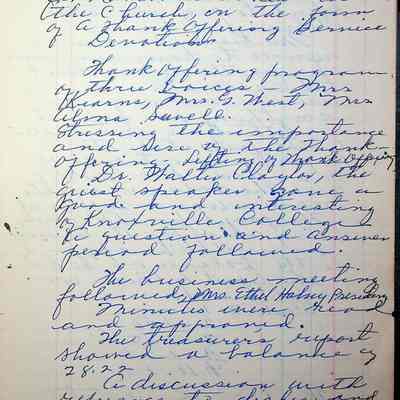 the Church, in the form
of a Thank Offering Service
Devotions
Thank Offering program
of three voices - Mrs
Kearns, Mrs. G. West, Mrs
Alma Savell.
Stressing the importance
and size of the Thank-
offering. Lifting of Thank Offering
Dr. Walter Claytor, the
guest speaker gave a
good and interesting
of Knoxville College
a question and answer
period followed.
The business meeting
followed, Mrs. Ethel Halsey Presiding
Minutes were read
and approved.
The treasurers report
showed a balance of
28.22
A discussion with
reference to